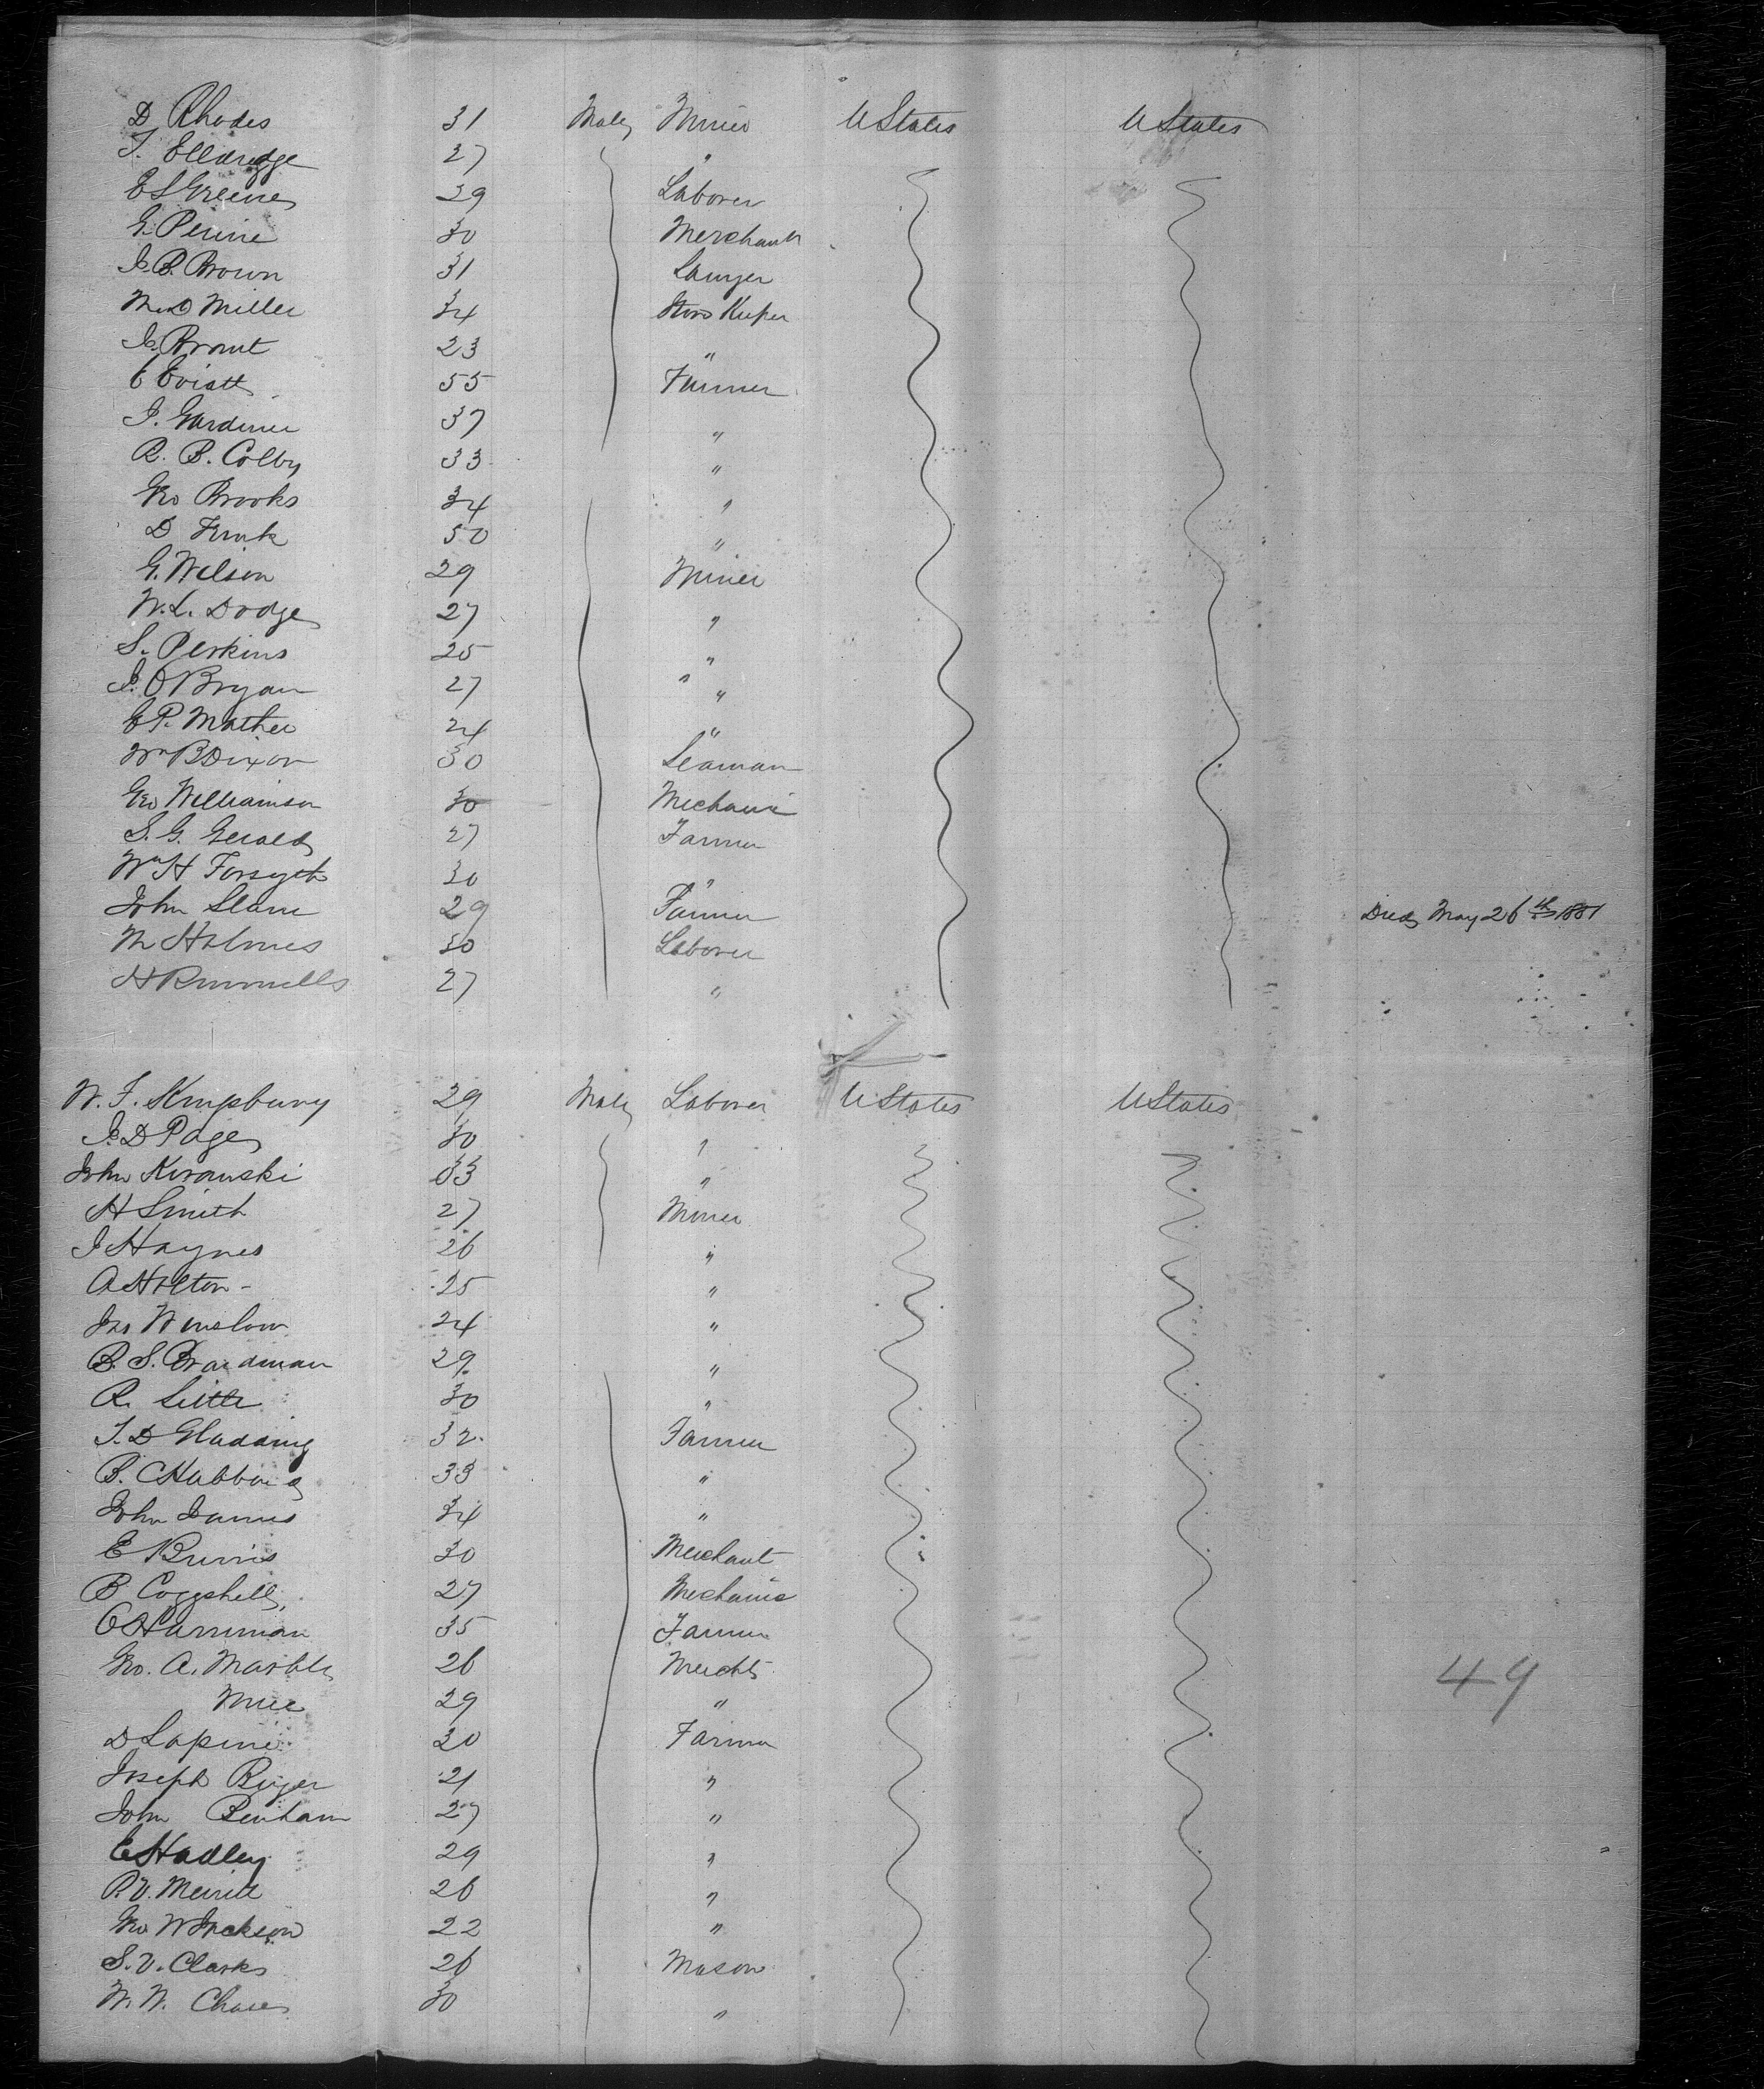 D Rhodes 31 Male Miner U States U States
T. Elldredge 27 "
E S Greene 29 Laborer
G. Perine 30 Merchant
J. B. Brown 31 Lawyer
M. D Miller 34 Store Keeper
J. Brant 23 "
C Eviatt 55 Farmer
J. Gardiner 37 "
R. B. Colby 33 "
Geo Brooks 34 "
D Funk 50 "
G. Wilson 29 Miner
W. L. Dodge 27 "
S. Perkins 25 "
J. O Bryan 27 " "
E P. Mather 24 "
Wm B Dixon 30 Seaman
Geo Williamson 30 Mechanic
S. G. Gerald 27 Farmer
Wm H Forsyth 30 "
John Slam 29 Farmer Died May 26th 1851
M Holmes 30 Laborer
H Runnells 27 "
W. F. Kingsbury 29 Male Laborer U States U States
J. D Page 30 "
John Kirowski 33 "
H Smith 27 Miner
J Haynes 26 "
A Holton - 25 "
Jno Winslow 24 "
B. S. Boardman 29 "
R. Little 30 "
T. D Gladding 32 Farmer
B. C Hubbard 33 "
John James 34 "
E Burris 30 Merchant
B Coggshell 27 Mechanic
C Harriman 35 Farmer
Geo. A. Marble 26 Mercht
29 "
D Lapine 30 Farmer
Joseph 21 "
John Benham 27 "
E Hadley 29 "
P. V. Merrill 26 "
Geo W Jackson 22 "
S. V. Clarks 26 Mason
W. W. Chase 30 "
49